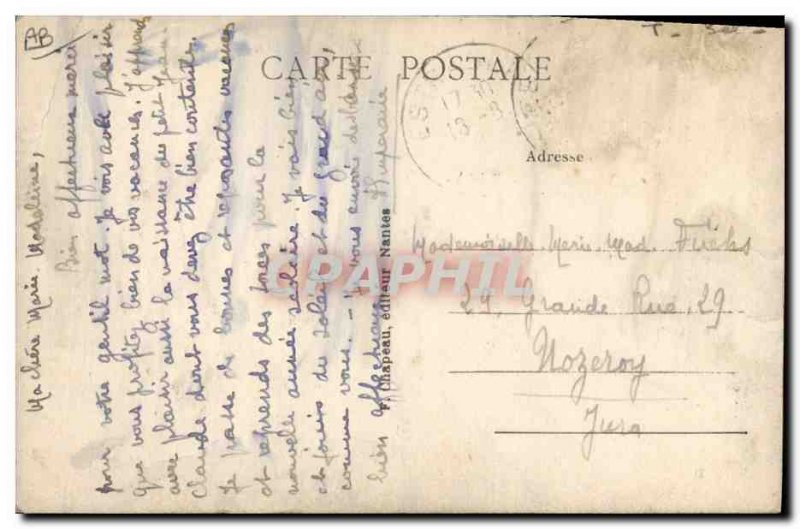 CARTE POSTALE
Adresse
Ma chère Marie-Madeleine,
Bien affectueux merci
pour votre gentil mot. Je vois avec plaisir
que vous profitez bien de vos vacances. J'apprends
avec plaisir aussi la naissance du petit Jean
Claude dont vous devez être bien contents.
Je passe de bonnes et reposantes vacances
et reprends des forces pour la
nouvelle année scolaire. Je vais bien
et jouis du soleil et du grand air
comme vous. - Je vous envoie de
bien affectueux
F. Chapeau, éditeur Nantes
Mademoiselle Marie-Mad. Fuchs
27, Grande Rue, 29
Nozeroy
Jura
CPAPHIL